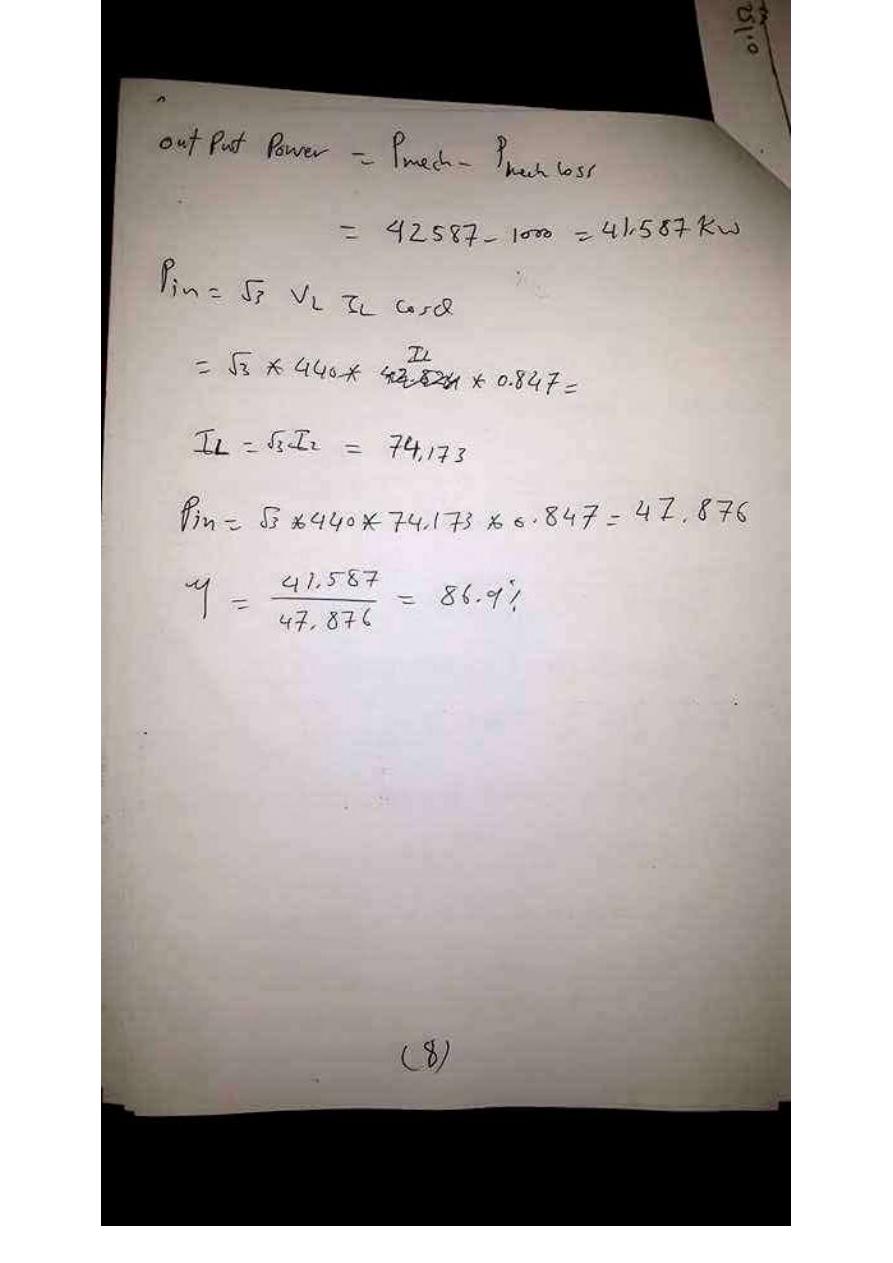 out Put Power = Pmech - Pmech loss
= 42587 - 1000 = 41.587 Kw
Pin = √3 VL IL cosθ
= √3 * 440 * IL * 0.847 =
IL = √3 I2 = 74.173
Pin = √3 * 440 * 74.173 * 0.847 = 47.876
η = 41.587 / 47.876 = 86.9%
(8)